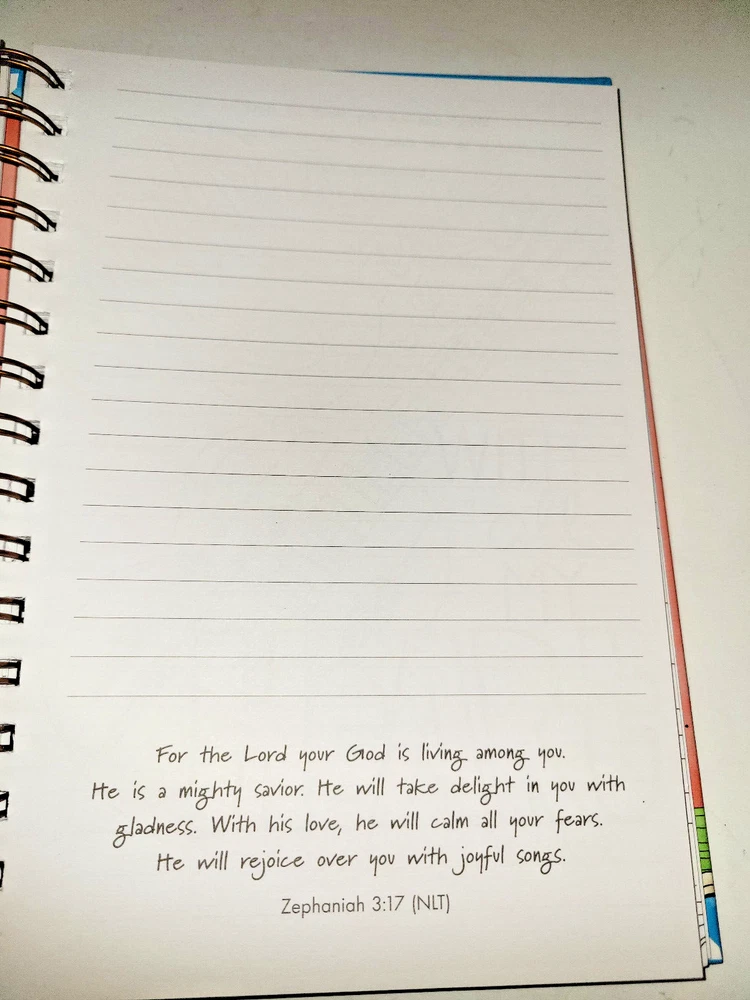 For the Lord your God is living among you.
He is a mighty savior. He will take delight in you with
gladness. With his love, he will calm all your fears.
He will rejoice over you with joyful songs.
Zephaniah 3:17 (NLT)